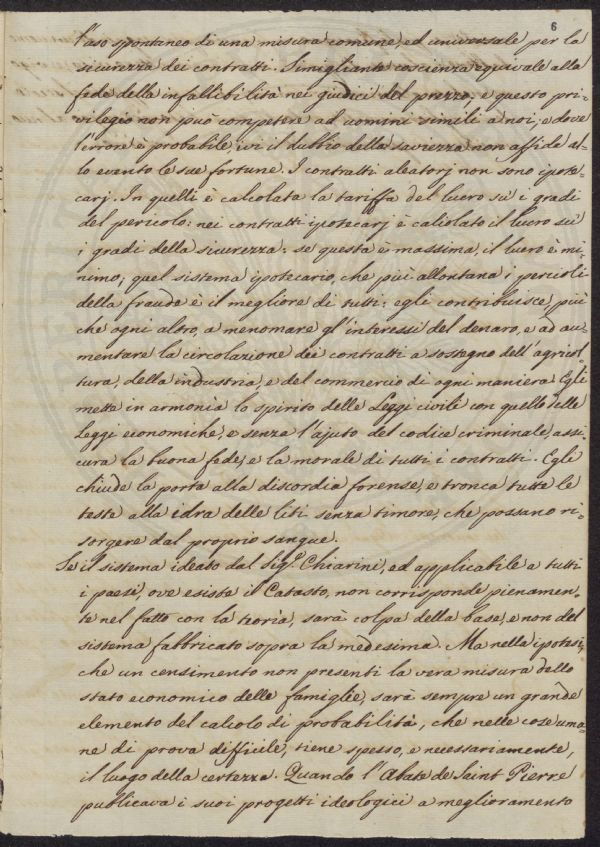 6
l'uso spontaneo di una misura comune, ed universale per la
sicurezza dei contratti. Simigliante coscienza equivale alla
fede della infallibilità nei giudici del prezzo; e questo pri-
vilegio non può competere ad uomini simili a noi; e dove
l'errore è probabile, ivi il dubbio della saviezza non affida al-
lo evento le sue fortune. I contratti aleatorj non sono ipote-
carj. In quelli è calcolata la tariffa del lucro sù i gradi
del pericolo: nei contratti ipotecarj è calcolato il lucro sù
i gradi della sicurezza: se questa è massima, il lucro è mi-
nimo; quel sistema ipotecario, che più allontana i pericoli
della fraude è il megliore di tutti: egli contribuisce, più
che ogni altro, a menomare gl'interessi del denaro, e ad au-
mentare la circolazione dei contratti a sostegno dell'agricol-
tura, della industria, e del commercio di ogni maniera. Egli
mette in armonia lo spirito delle Leggi civili con quello delle
Leggi economiche, e senza l'ajuto del codice criminale, assi-
cura la buona fede, e la morale di tutti i contratti. Egli
chiude la porta alla discordia forense, e tronca tutte le
teste alla idra delle liti senza timore, che possano ri-
sorgere dal proprio sangue.
Se il sistema ideato dal Sigr. Chiarini, ed applicabile a tutti
i paesi, ove esiste il Catasto, non corrisponde pienamen-
te nel fatto con la teoria, sarà colpa della base, e non del
sistema fabbricato sopra la medesima. Ma nella ipotesi,
che un censimento non presenti la vera misura dello
stato economico delle famiglie, sarà sempre un grande
elemento del calcolo di probabilità, che nelle cose uma-
ne di prova difficile, tiene spesso, e necessariamente,
il luogo della certezza. Quando l'Abate de Saint Pierre
publicava i suoi progetti ideologici a meglioramento